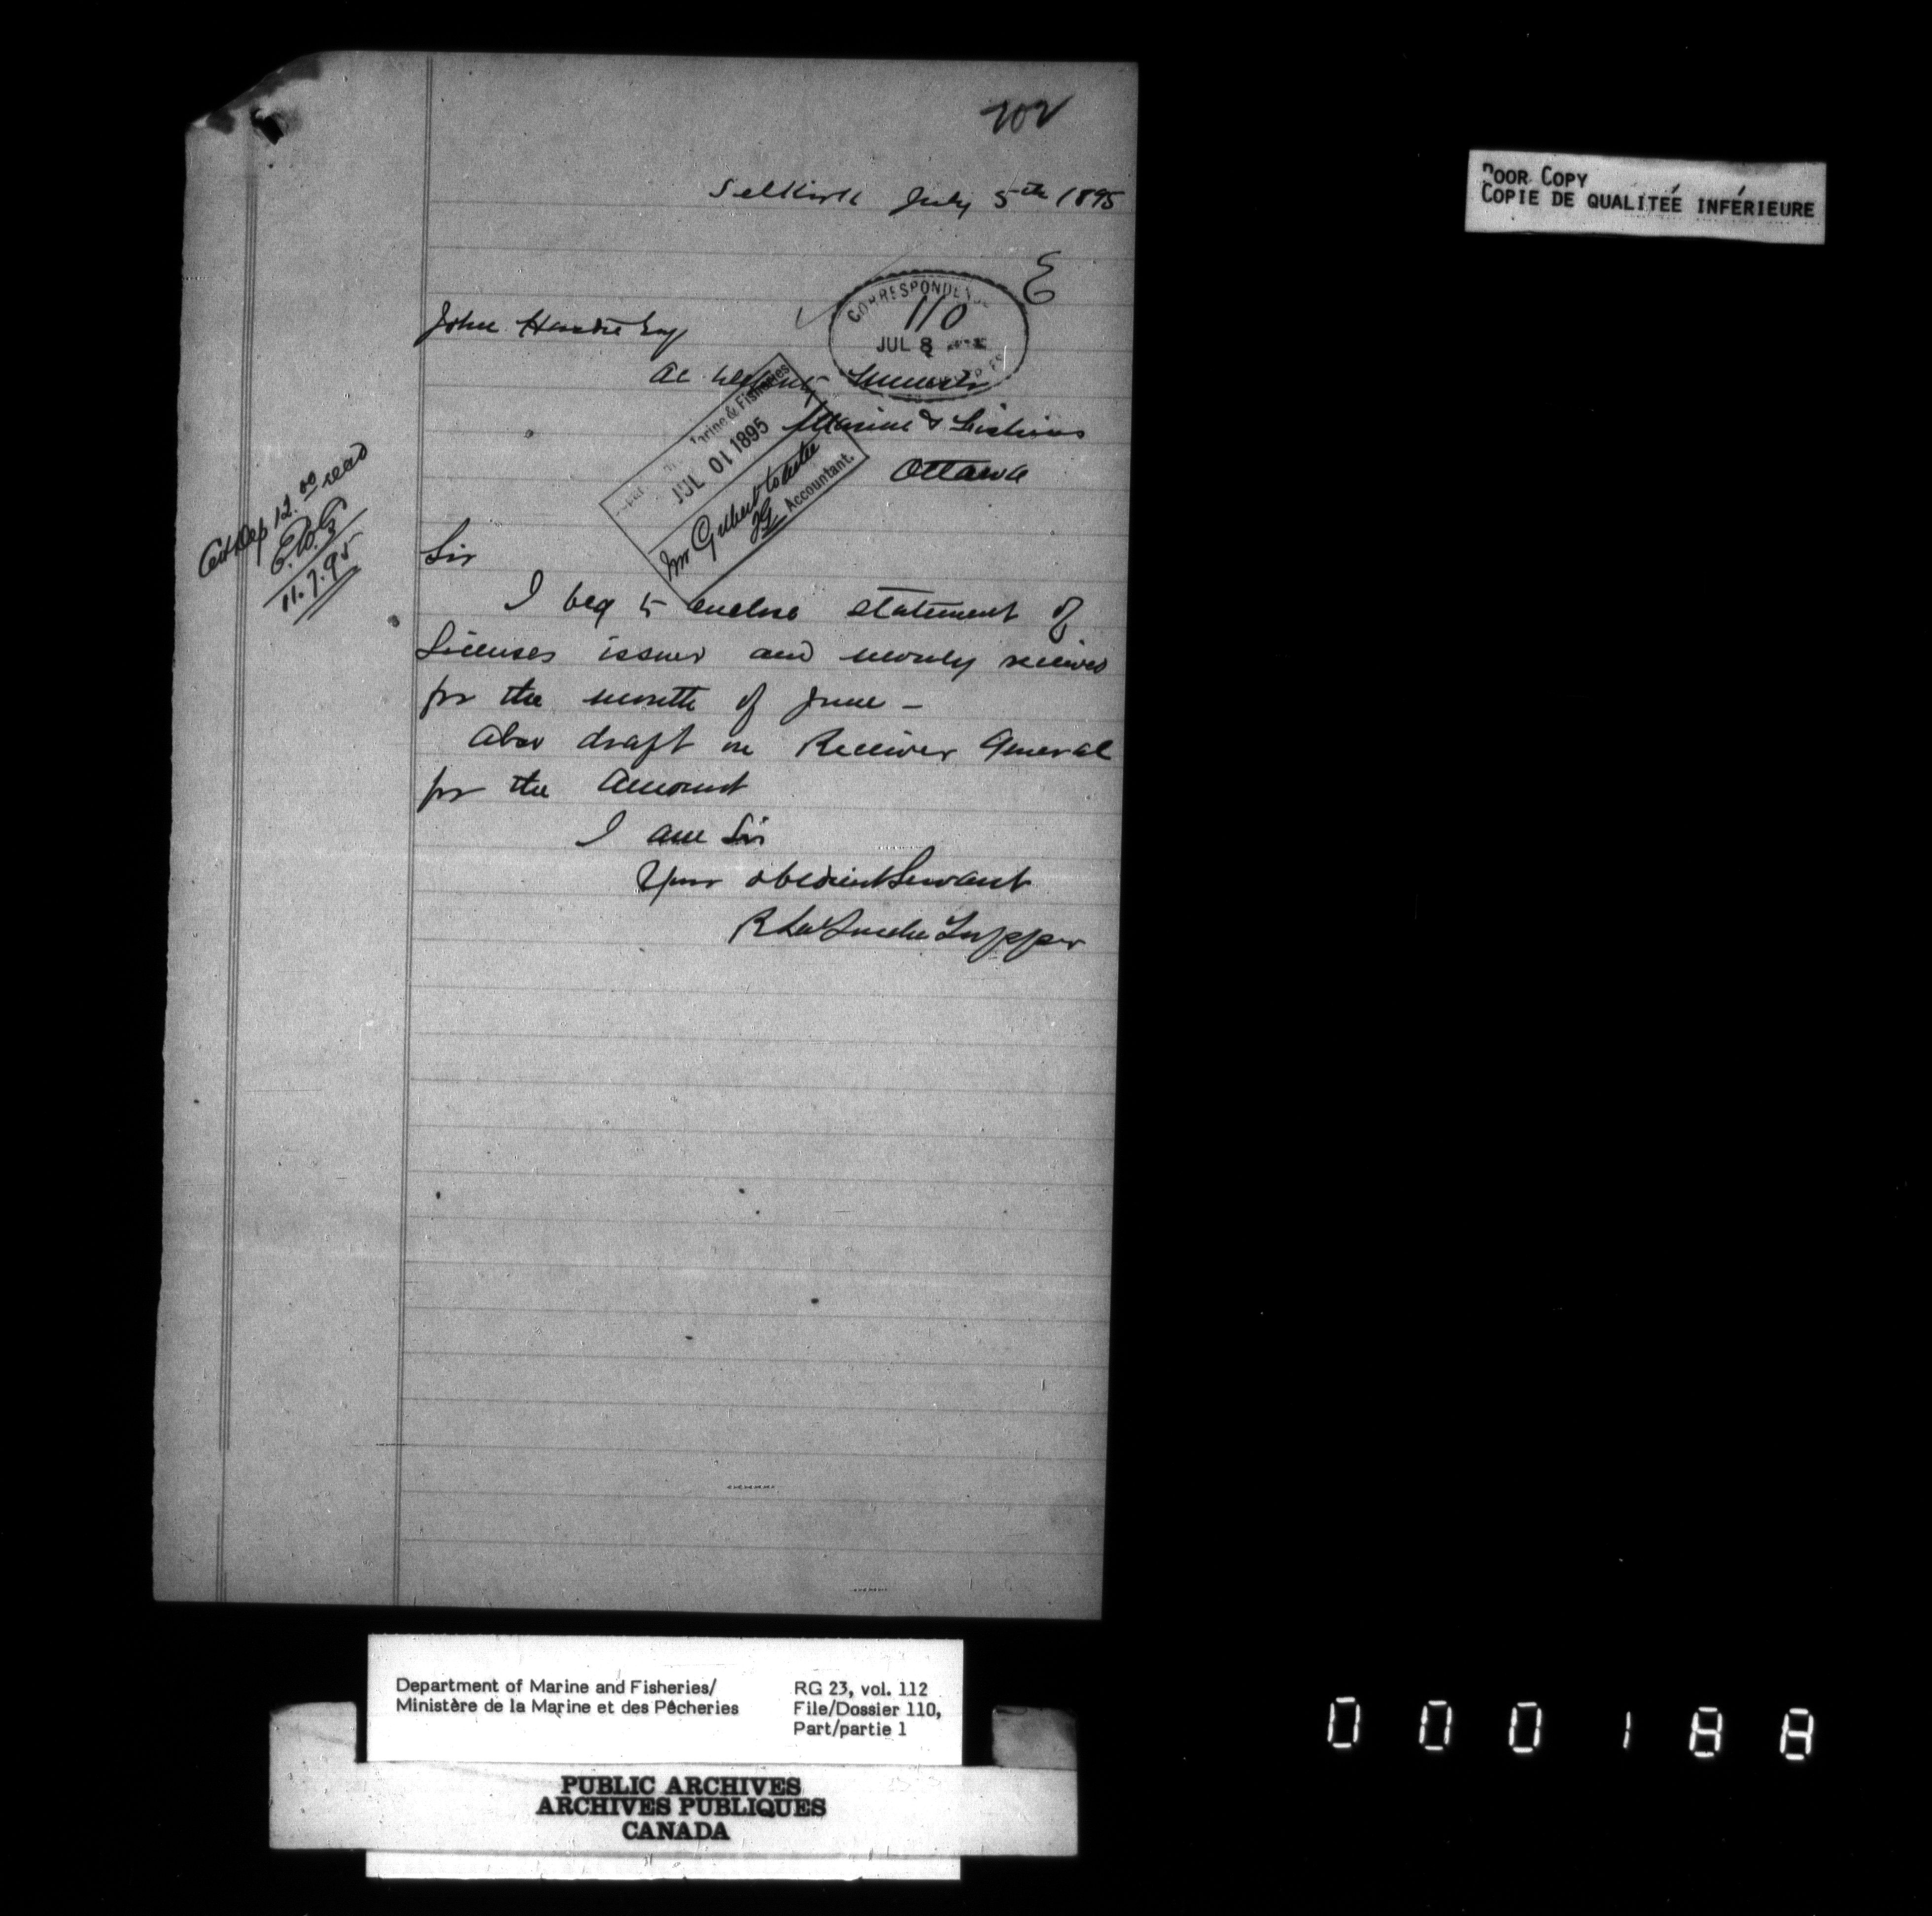 202
Selkirk July 5th 1895
E
CORRESPONDENCE
110
JUL 8
John Hardie Esq
Ac Deputy Minister
Marine & Fisheries
Ottawa
Marine & Fisheries
JUL 01 1895
Mr Gilbert to note
Accountant.
Cert Dep 12.00 recd
E.B.G
11.7.95
Sir
I beg to enclose statement of
Licenses issued and money received
for the month of June -
Also draft on Receiver General
for the Amount
I am Sir
Your obedient Servant
R LaTouche Tupper
POOR COPY
COPIE DE QUALITÉE INFÉRIEURE
Department of Marine and Fisheries/
Ministère de la Marine et des Pêcheries
RG 23, vol. 112
File/Dossier 110,
Part/partie 1
PUBLIC ARCHIVES
ARCHIVES PUBLIQUES
CANADA
000188